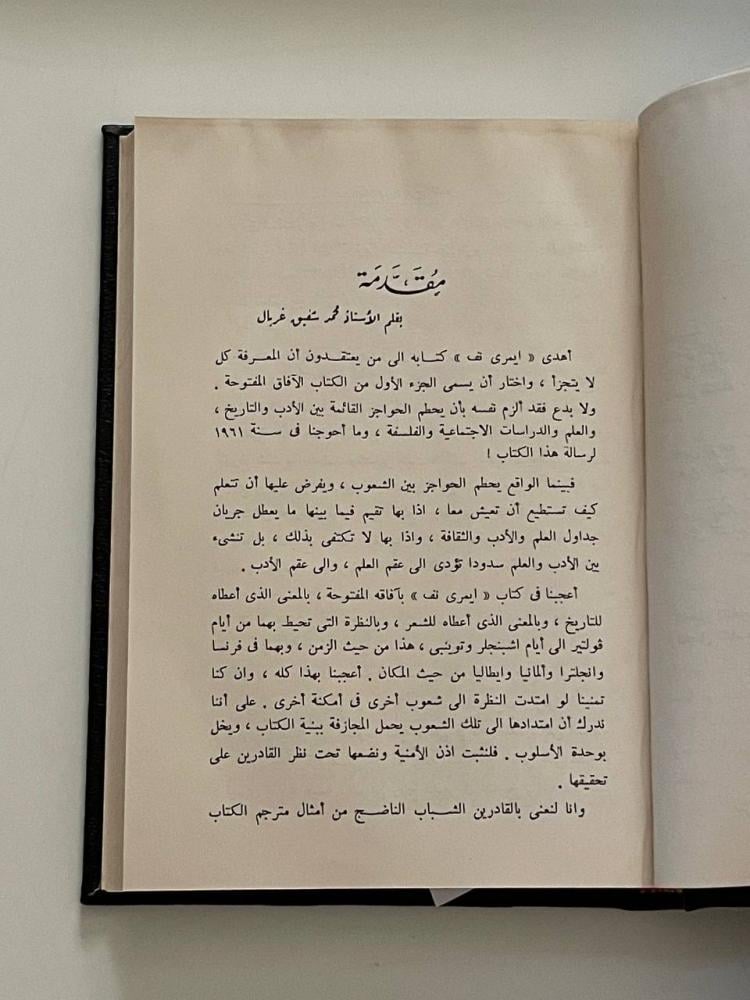 مُقَدَّمَة
بقلم الأستاذ محمد شفيق غربال
أهدى « ايمرى نف » كتابه الى من يعتقدون أن المعرفة كل
لا يتجزأ ، واختار أن يسمى الجزء الأول من الكتاب الآفاق المفتوحة .
ولا بدع فقد ألزم نفسه بأن يحطم الحواجز القائمة بين الأدب والتاريخ ،
والعلم والدراسات الاجتماعية والفلسفة ، وما أحوجنا فى سنة ١٩٦١
لرسالة هذا الكتاب !
فبينما الواقع يحطم الحواجز بين الشعوب ، ويفرض عليها أن تتعلم
كيف تستطيع أن تعيش معا ، اذا بها تقيم فيما بينها ما يعطل جريان
جداول العلم والأدب والثقافة ، واذا بها لا تكتفى بذلك ، بل تنشىء
بين الأدب والعلم سدودا تؤدى الى عقم العلم ، والى عقم الأدب .
أعجبنا فى كتاب « ايمرى نف » بآفاقه المفتوحة ، بالمعنى الذى أعطاه
للتاريخ ، وبالمعنى الذى أعطاه للشعر ، وبالنظرة التى تحيط بهما من أيام
ڤولتير الى أيام اشبنجلر وتوينبى ، هذا من حيث الزمن ، وبهما فى فرنسا
وانجلترا وألمانيا وايطاليا من حيث المكان . أعجبنا بهذا كله ، وان كنا
تمنينا لو امتدت النظرة الى شعوب أخرى فى أمكنة أخرى . على أننا
ندرك أن امتدادها الى تلك الشعوب يحمل المجازفة ببنية الكتاب ، ويخل
بوحدة الأسلوب . فلنثبت اذن الأمنية ونضعها تحت نظر القادرين على
تحقيقها .
وانا لنعنى بالقادرين الشباب الناضج من أمثال مترجم الكتاب